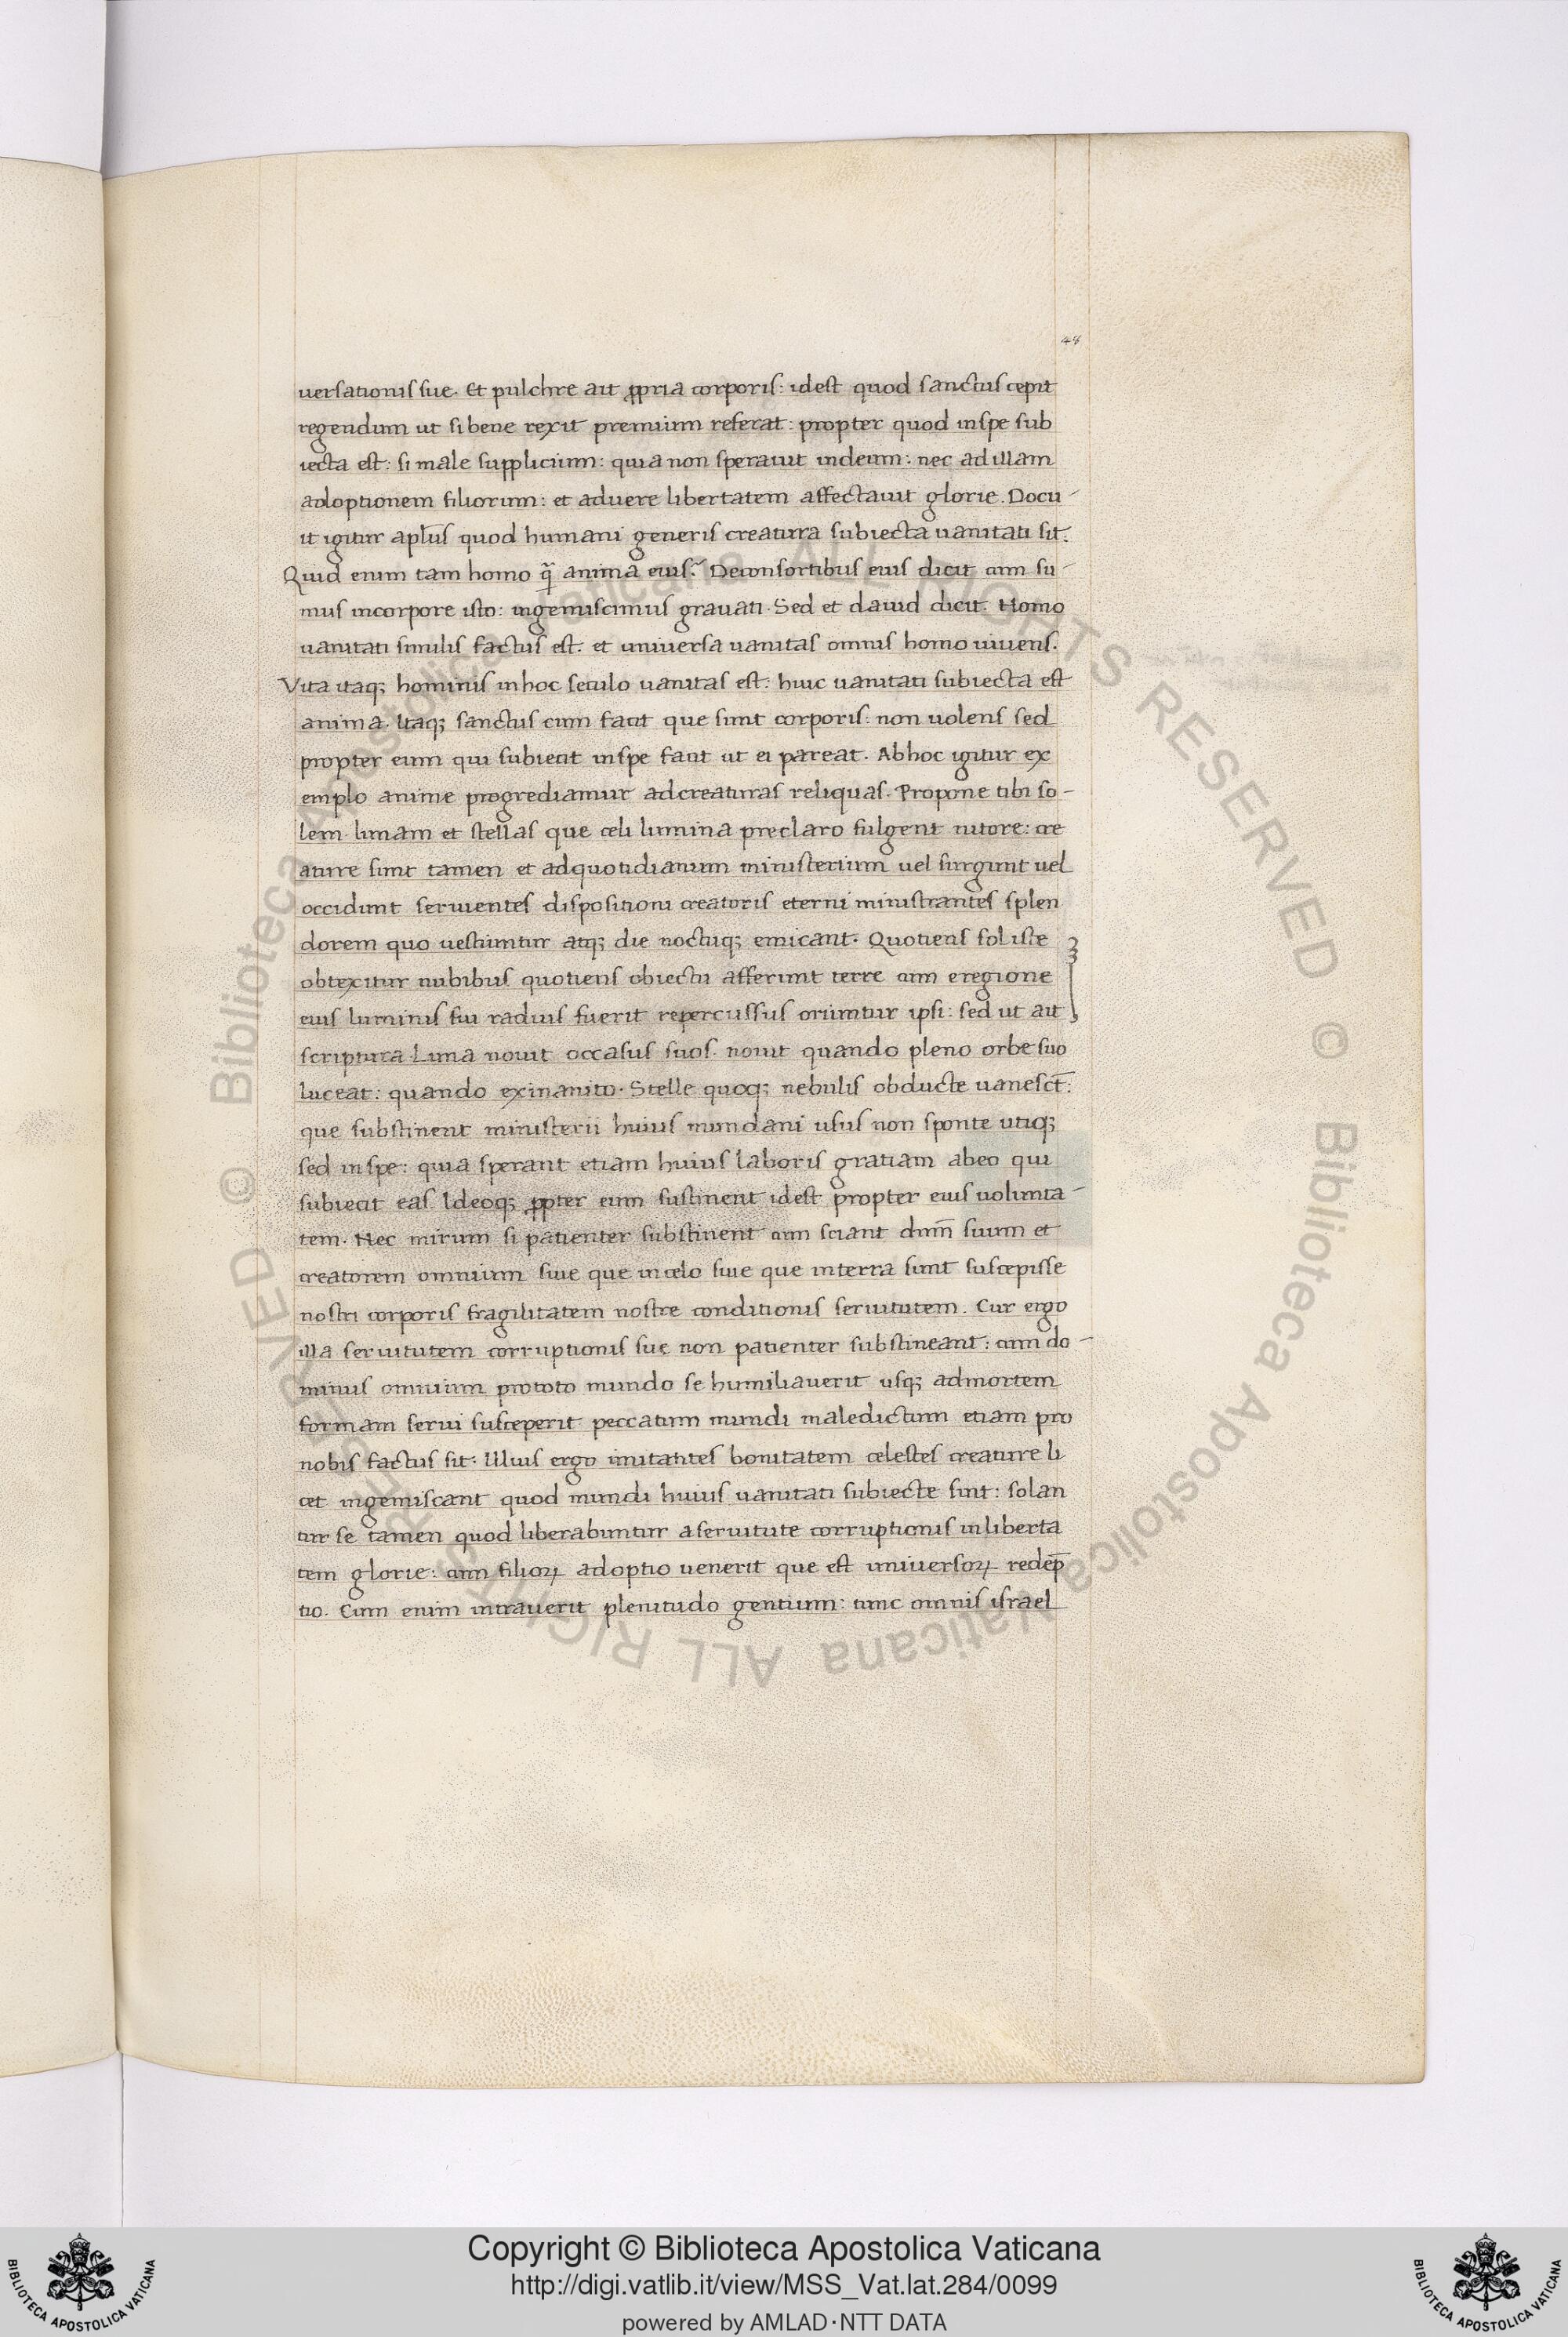 48
uersationis sue. Et pulchre ait ꝓpria corporis: idest quod sanctus cepit
regendum ut si bene rexit premium referat: propter quod inspe sub
iecta est: si male supplicium: quia non sperauit indeum: nec ad illam
adoptionem filiorum: et aduere libertatem affectauit glorie. Docu-
it igitur apl̄us quod humani generis creatura subiecta uanitati sit.
Quid enim tam homo q̄ anima eius? Deconsortibus eius dicit cum su-
mus incorpore isto: ingemiscimus grauati. Sed et dauid dicit. Homo
uanitati similis factus est. et uniuersa uanitas omnis homo uiuens.
Vita itaq; hominis inhoc seculo uanitas est: huic uanitati subiecta est
anima. Itaq; sanctus cum facit que sunt corporis: non uolens sed
propter eum qui subiecit inspe facit ut ei pareat. Abhoc igitur ex
emplo anime progrediamur adcreaturas reliquas. Propone tibi so-
lem lunam et stellas que celi lumina preclaro fulgent nitore: cre
ature sunt tamen et adquotidianum ministerium uel surgunt uel
occidunt seruientes dispositioni creatoris eterni ministrantes splen
dorem quo uestiuntur atq; die noctuq; emicant. Quotiens sol iste
obtexitur nubibus quotiens obiectu afferunt terre cum eregione
eius luminis sui radius fuerit repercussus oriuntur ipsi: sed ut ait
scriptura Luna nouit occasus suos. nouit quando pleno orbe suo
luceat: quando exinanito. Stelle quoq; nebulis obducte uanesct̄:
que substinent ministerii huius mundani usus non sponte utiq;
sed inspe: quia sperant etiam huius laboris gratiam abeo qui
subiecit eas. Ideoq; ꝓpter eum sustinent idest propter eius uolunta-
tem. Nec mirum si patienter substinent cum sciant dnm̄ suum et
creatorem omnium siue que incelo siue que interra sunt suscepisse
nostri corporis fragilitatem nostre conditionis seruitutem. Cur ergo
illa seruitutem corruptionis sue non patienter substineant: cum do-
minus omnium prototo mundo se humiliauerit usq; admortem
formam serui susceperit peccatum mundi maledictum etiam pro
nobis factus sit. Illius ergo imitantes bonitatem celestes creature li
cet ingemiscant quod mundi huius uanitati subiecte sint: solan
tur se tamen quod liberabuntur aseruitute corruptionis inliberta
tem glorie: cum filioꝝ adoptio uenerit que est uniuersoꝝ redēp
tio. Cum enim intrauerit plenitudo gentium: tunc omnis israel
© Biblioteca Apostolica Vaticana ALL RIGHTS RESERVED © Biblioteca Apostolica Vaticana ALL RIGHTS RESERVED
Copyright © Biblioteca Apostolica Vaticana
http://digi.vatlib.it/view/MSS_Vat.lat.284/0099
powered by AMLAD·NTT DATA
BIBLIOTECA APOSTOLICA VATICANA
BIBLIOTECA APOSTOLICA VATICANA